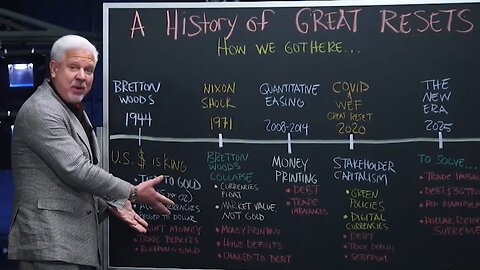 A HISTORY of GREAT RESETS
HOW WE GOT HERE...
BRETTON
WOODS
1944
NIXON
SHOCK
1971
QUANTITATIVE
EASING
2008-2014
COVID
WEF
GREAT RESET
2020
THE
NEW
ERA
2025
U.S. $ IS KING
TIED TO GOLD
TRADE DEFICITS
BRETTON
WOODS
COLLAPSE
• CURRENCIES
FLOAT
• MARKET VALUE
NOT GOLD
• MONEY PRINTING
• HUGE DEFICITS
• CHAINED TO DEBT
MONEY
PRINTING
• DEBT
• TRADE
IMBALANCES
STAKEHOLDER
CAPITALISM
• GREEN
POLICIES
• DIGITAL
CURRENCIES
• DEBT
• TRADE DEFICITS
TO SOLVE...
• TRADE
• DEBT
• DOLLAR